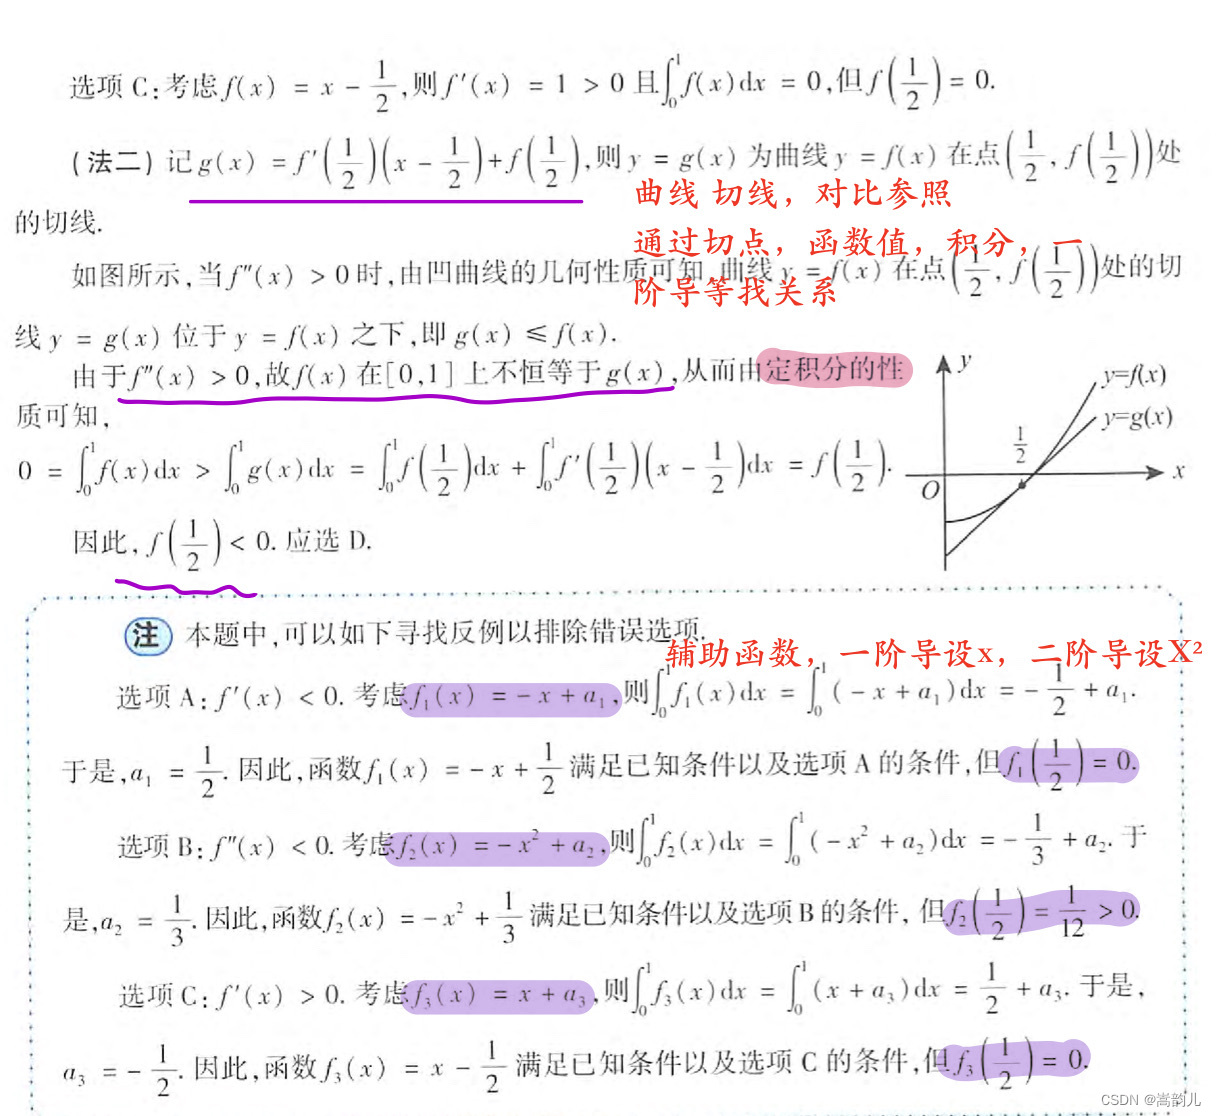 选项 C:考虑 f(x) = x - 1/2,则 f′(x) = 1 > 0 且∫₀¹ f(x)dx = 0,但 f(1/2) = 0.
(法二) 记 g(x) = f′(1/2)(x - 1/2)+f(1/2),则 y = g(x) 为曲线 y = f(x) 在点(1/2, f(1/2))处
曲线 切线，对比参照
的切线.
通过切点，函数值，积分，一
如图所示,当 f″(x) > 0 时,由凹曲线的几何性质可知,曲线 y = f(x) 在点(1/2, f(1/2))处的切
阶导等找关系
线 y = g(x) 位于 y = f(x) 之下,即 g(x) ≤ f(x).
由于 f″(x) > 0,故 f(x) 在[0,1] 上不恒等于 g(x),从而由定积分的性
质可知,
y
y=f(x)
y=g(x)
1/2
x
O
0 = ∫₀¹ f(x)dx > ∫₀¹ g(x)dx = ∫₀¹ f(1/2)dx + ∫₀¹ f′(1/2)(x - 1/2)dx = f(1/2).
因此, f(1/2) < 0. 应选 D.
注 本题中,可以如下寻找反例以排除错误选项.
辅助函数，一阶导设x，二阶导设X²
选项 A: f′(x) < 0. 考虑 f₁(x) = - x + a₁,则∫₀¹ f₁(x)dx = ∫₀¹ (- x + a₁)dx = - 1/2 + a₁.
于是,a₁ = 1/2. 因此,函数 f₁(x) = - x + 1/2 满足已知条件以及选项 A 的条件,但 f₁(1/2) = 0.
选项 B: f″(x) < 0. 考虑 f₂(x) = - x² + a₂,则∫₀¹ f₂(x)dx = ∫₀¹ (- x² + a₂)dx = - 1/3 + a₂. 于
是,a₂ = 1/3. 因此,函数 f₂(x) = - x² + 1/3 满足已知条件以及选项 B 的条件, 但 f₂(1/2) = 1/12 > 0.
选项 C: f′(x) > 0. 考虑 f₃(x) = x + a₃,则∫₀¹ f₃(x)dx = ∫₀¹ (x + a₃)dx = 1/2 + a₃. 于是,
a₃ = - 1/2. 因此,函数 f₃(x) = x - 1/2 满足已知条件以及选项 C 的条件,但 f₃(1/2) = 0.
CSDN @嵩韵儿